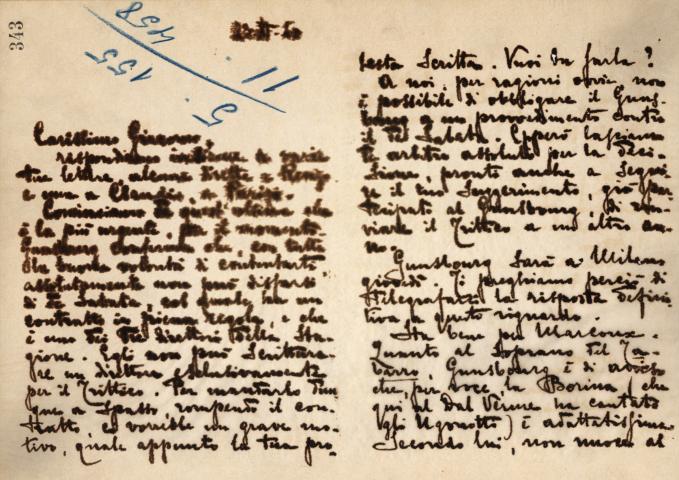 343
458
155
11.5.
Carissimo Giacomo,
rispondiamo insieme a varie
tue lettere, alcune dirette a Renzo
e una a Claudio, a Parigi.
Cominciamo da quest'ultima che
è la più urgente. Per il momento
Gunsbourg conferma che, con tutta
la buona volontà di contentarti
assolutamente non può disfarsi
di De Sabata, col quale ha un
contratto in piena regola, e che
è uno dei tre direttori della Sta-
gione. Egli non può scrittura-
re un direttore esclusivamente
per il Trittico. Per mandarlo dun-
que a spasso, rompendo il con-
tratto, ci vorrebbe un grave mo-
tivo, quale appunto la tua pro-
testa scritta. Vuoi tu farla?
A noi, per ragioni ovvie, non
è possibile di obbligare il Guns-
bourg a un provvedimento contro
il De Sabata. Epperò lasciamo
te arbitro assoluto per la deci-
sione, pronto anche a segui-
re il tuo suggerimento, già par-
tecipato al Gunsbourg, di rin-
viare il Trittico a un altro an-
no.
Gunsbourg sarà a Milano
giovedì. Ti preghiamo perciò di
telegrafarci la risposta defini-
tiva a questo riguardo.
Sta bene per Marcoux.
Quanto al soprano del Ta-
barro, Gunsbourg è di avviso
che, per voce, la Borina (che
qui al Dal Verme ha cantato
gli Ugonotti) è adattatissima.
Secondo lui, non nuoce al